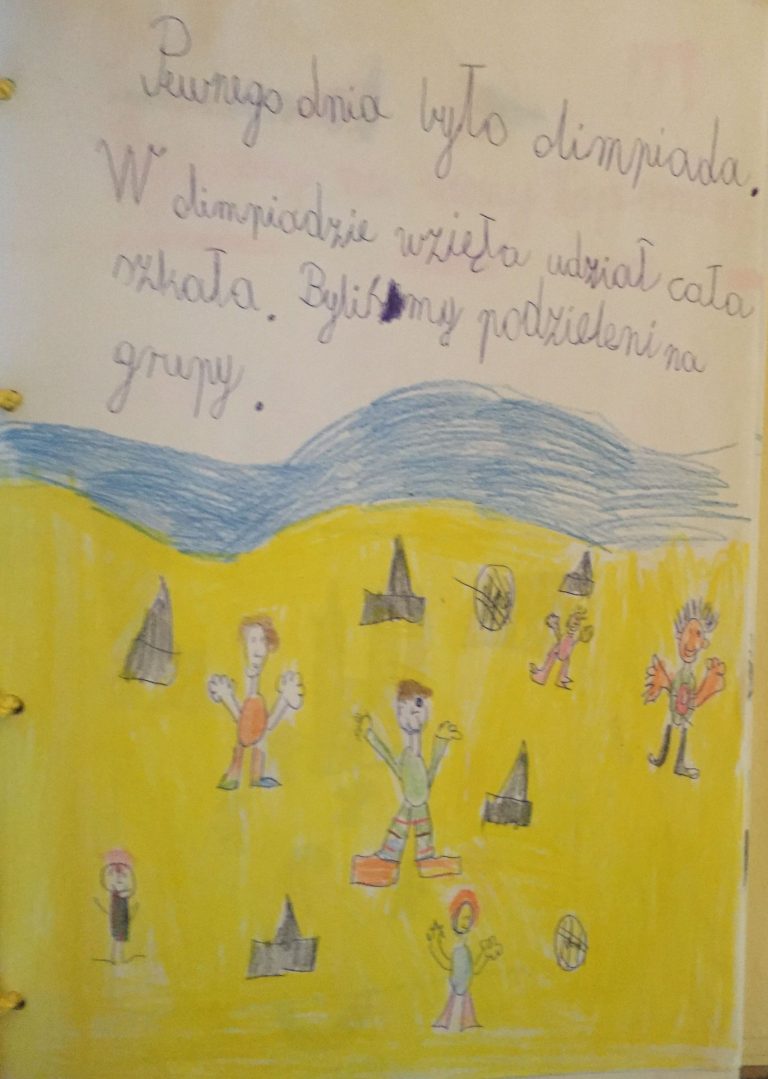 Pewnego dnia było olimpiada.
W olimpiadzie wzięła udział cała
szkała. Byliśmy podzieleni na
grupy.